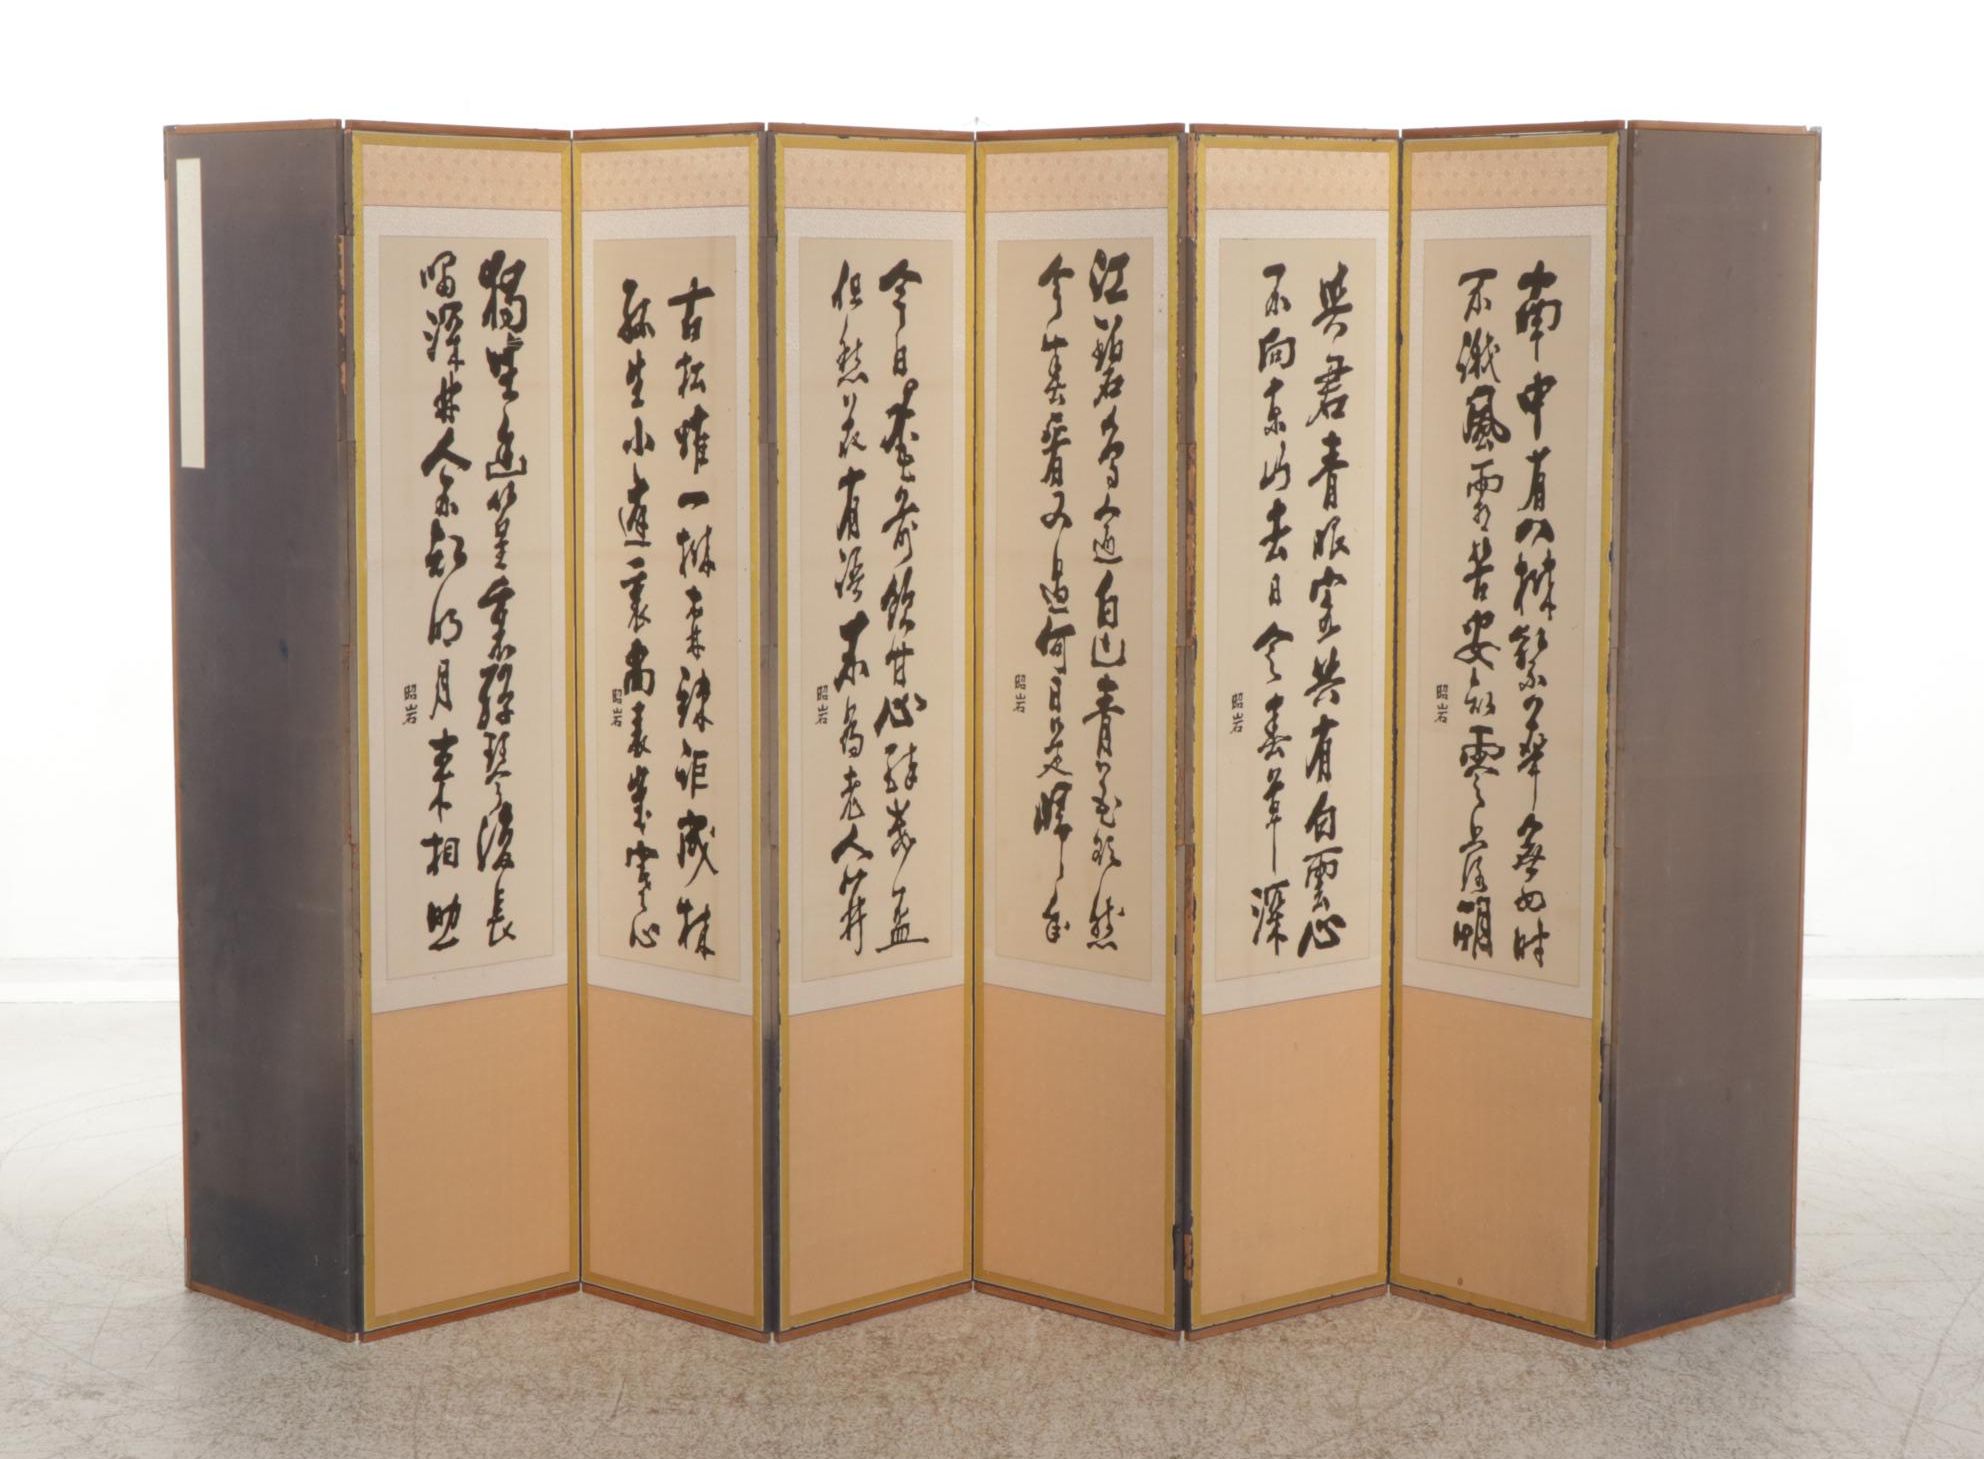 南中有八株繁華無四時
不識風霜苦安知零落期
昭岩
與君青眼客共有白雲心
不向東山去日令春草深
昭岩
江碧鳥逾白山青花欲然
今春看又過何日是歸年
昭岩
今日花前飲甘心醉數盃
但愁花有語不為老人開
昭岩
古松雖一株森疎詎成林
孤生小蓬裏尚表歲寒心
昭岩
獨坐幽篁裏彈琴復長
嘯深林人不知明月來相照
昭岩